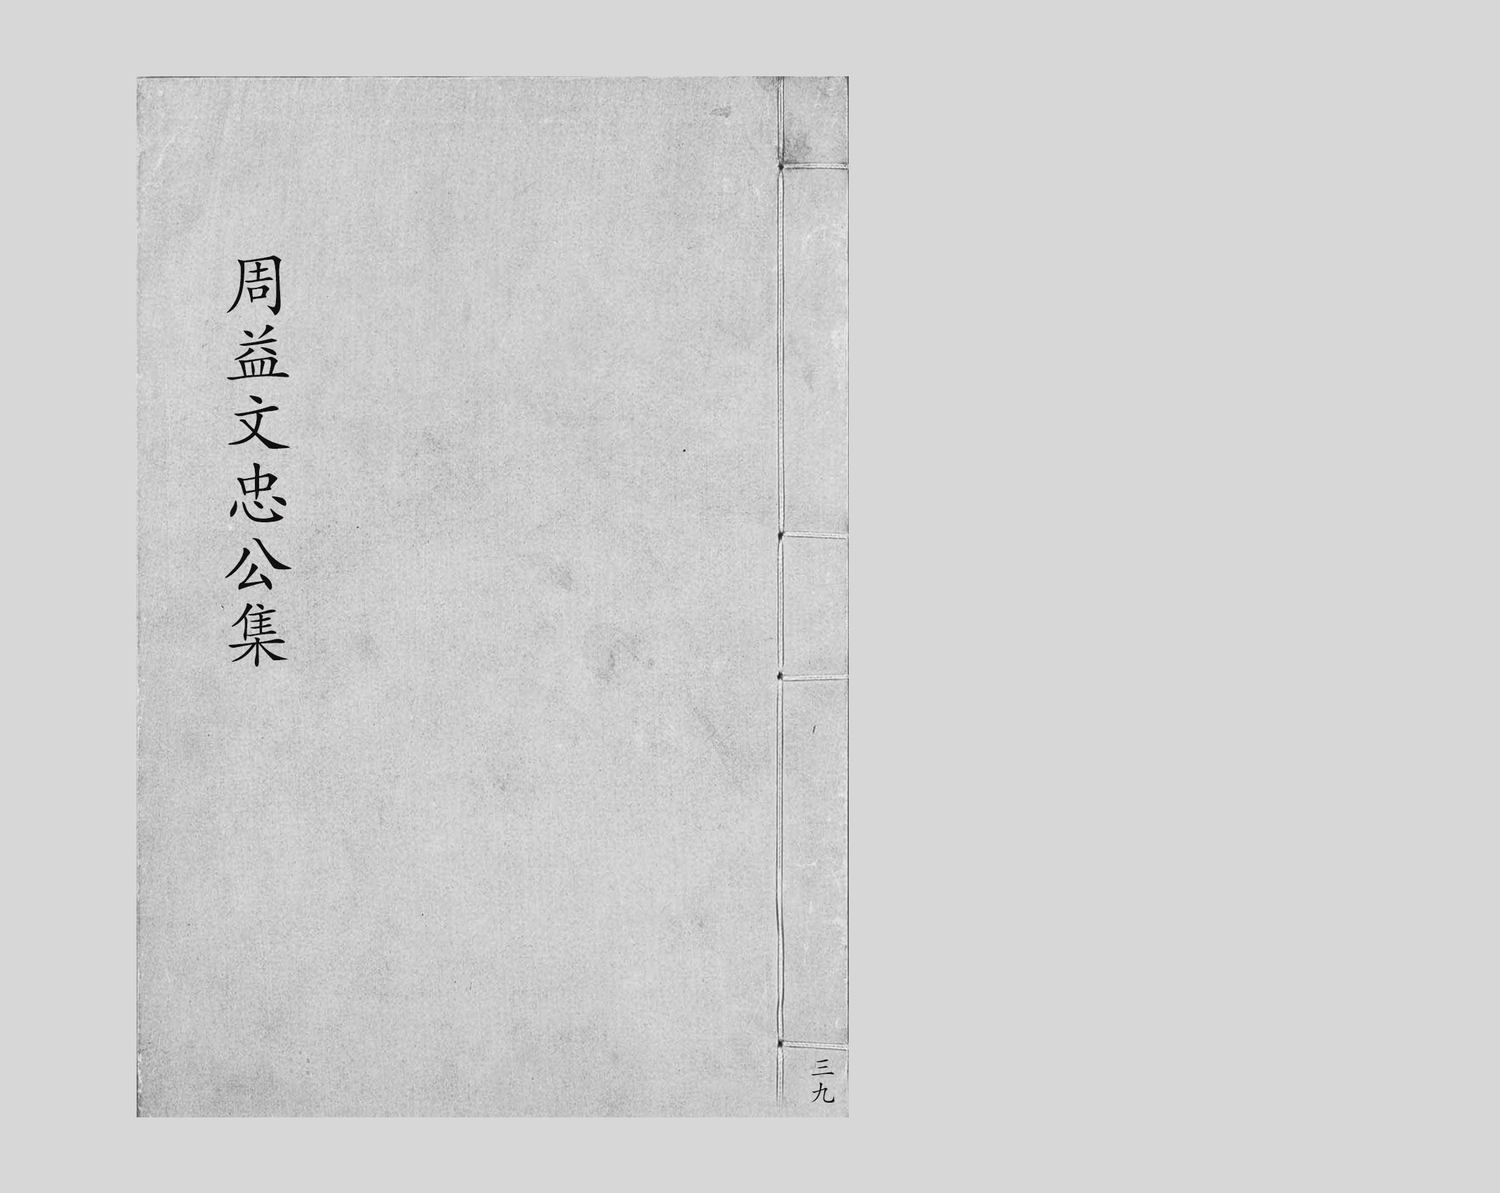 周益文忠公集
三九